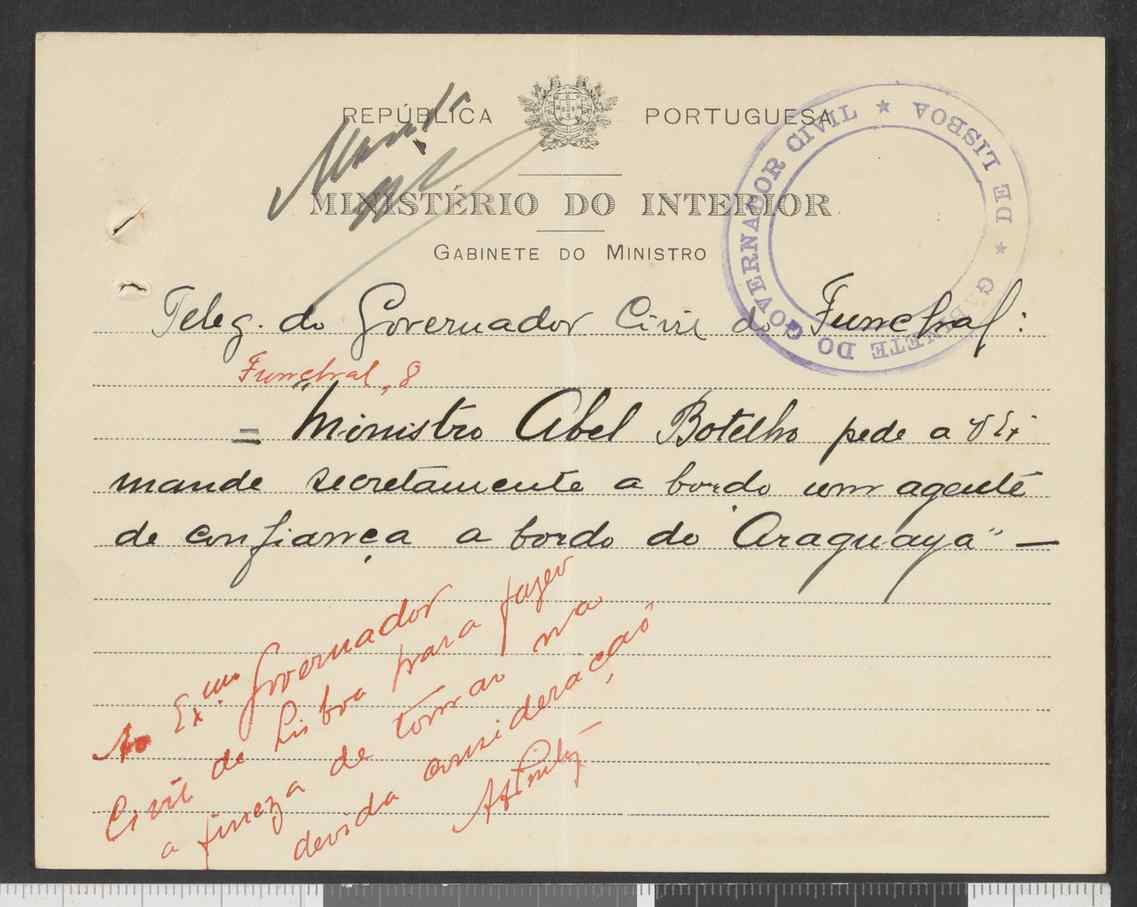 REPÚBLICA PORTUGUESA
MINISTÉRIO DO INTERIOR
GABINETE DO MINISTRO
GABINETE DO GOVERNADOR CIVIL ★ DE LISBOA ★
Teleg. do Governador Civil do Funchal:
Funchal, 8
= "Ministro Abel Botelho pede a V Ex
mande secretamente a bordo um agente
de confiança a bordo do "Araguaya" —
Ao Exmo Governador
Civil de Lisboa para fazer
a fineza de tomar na
devida consideração